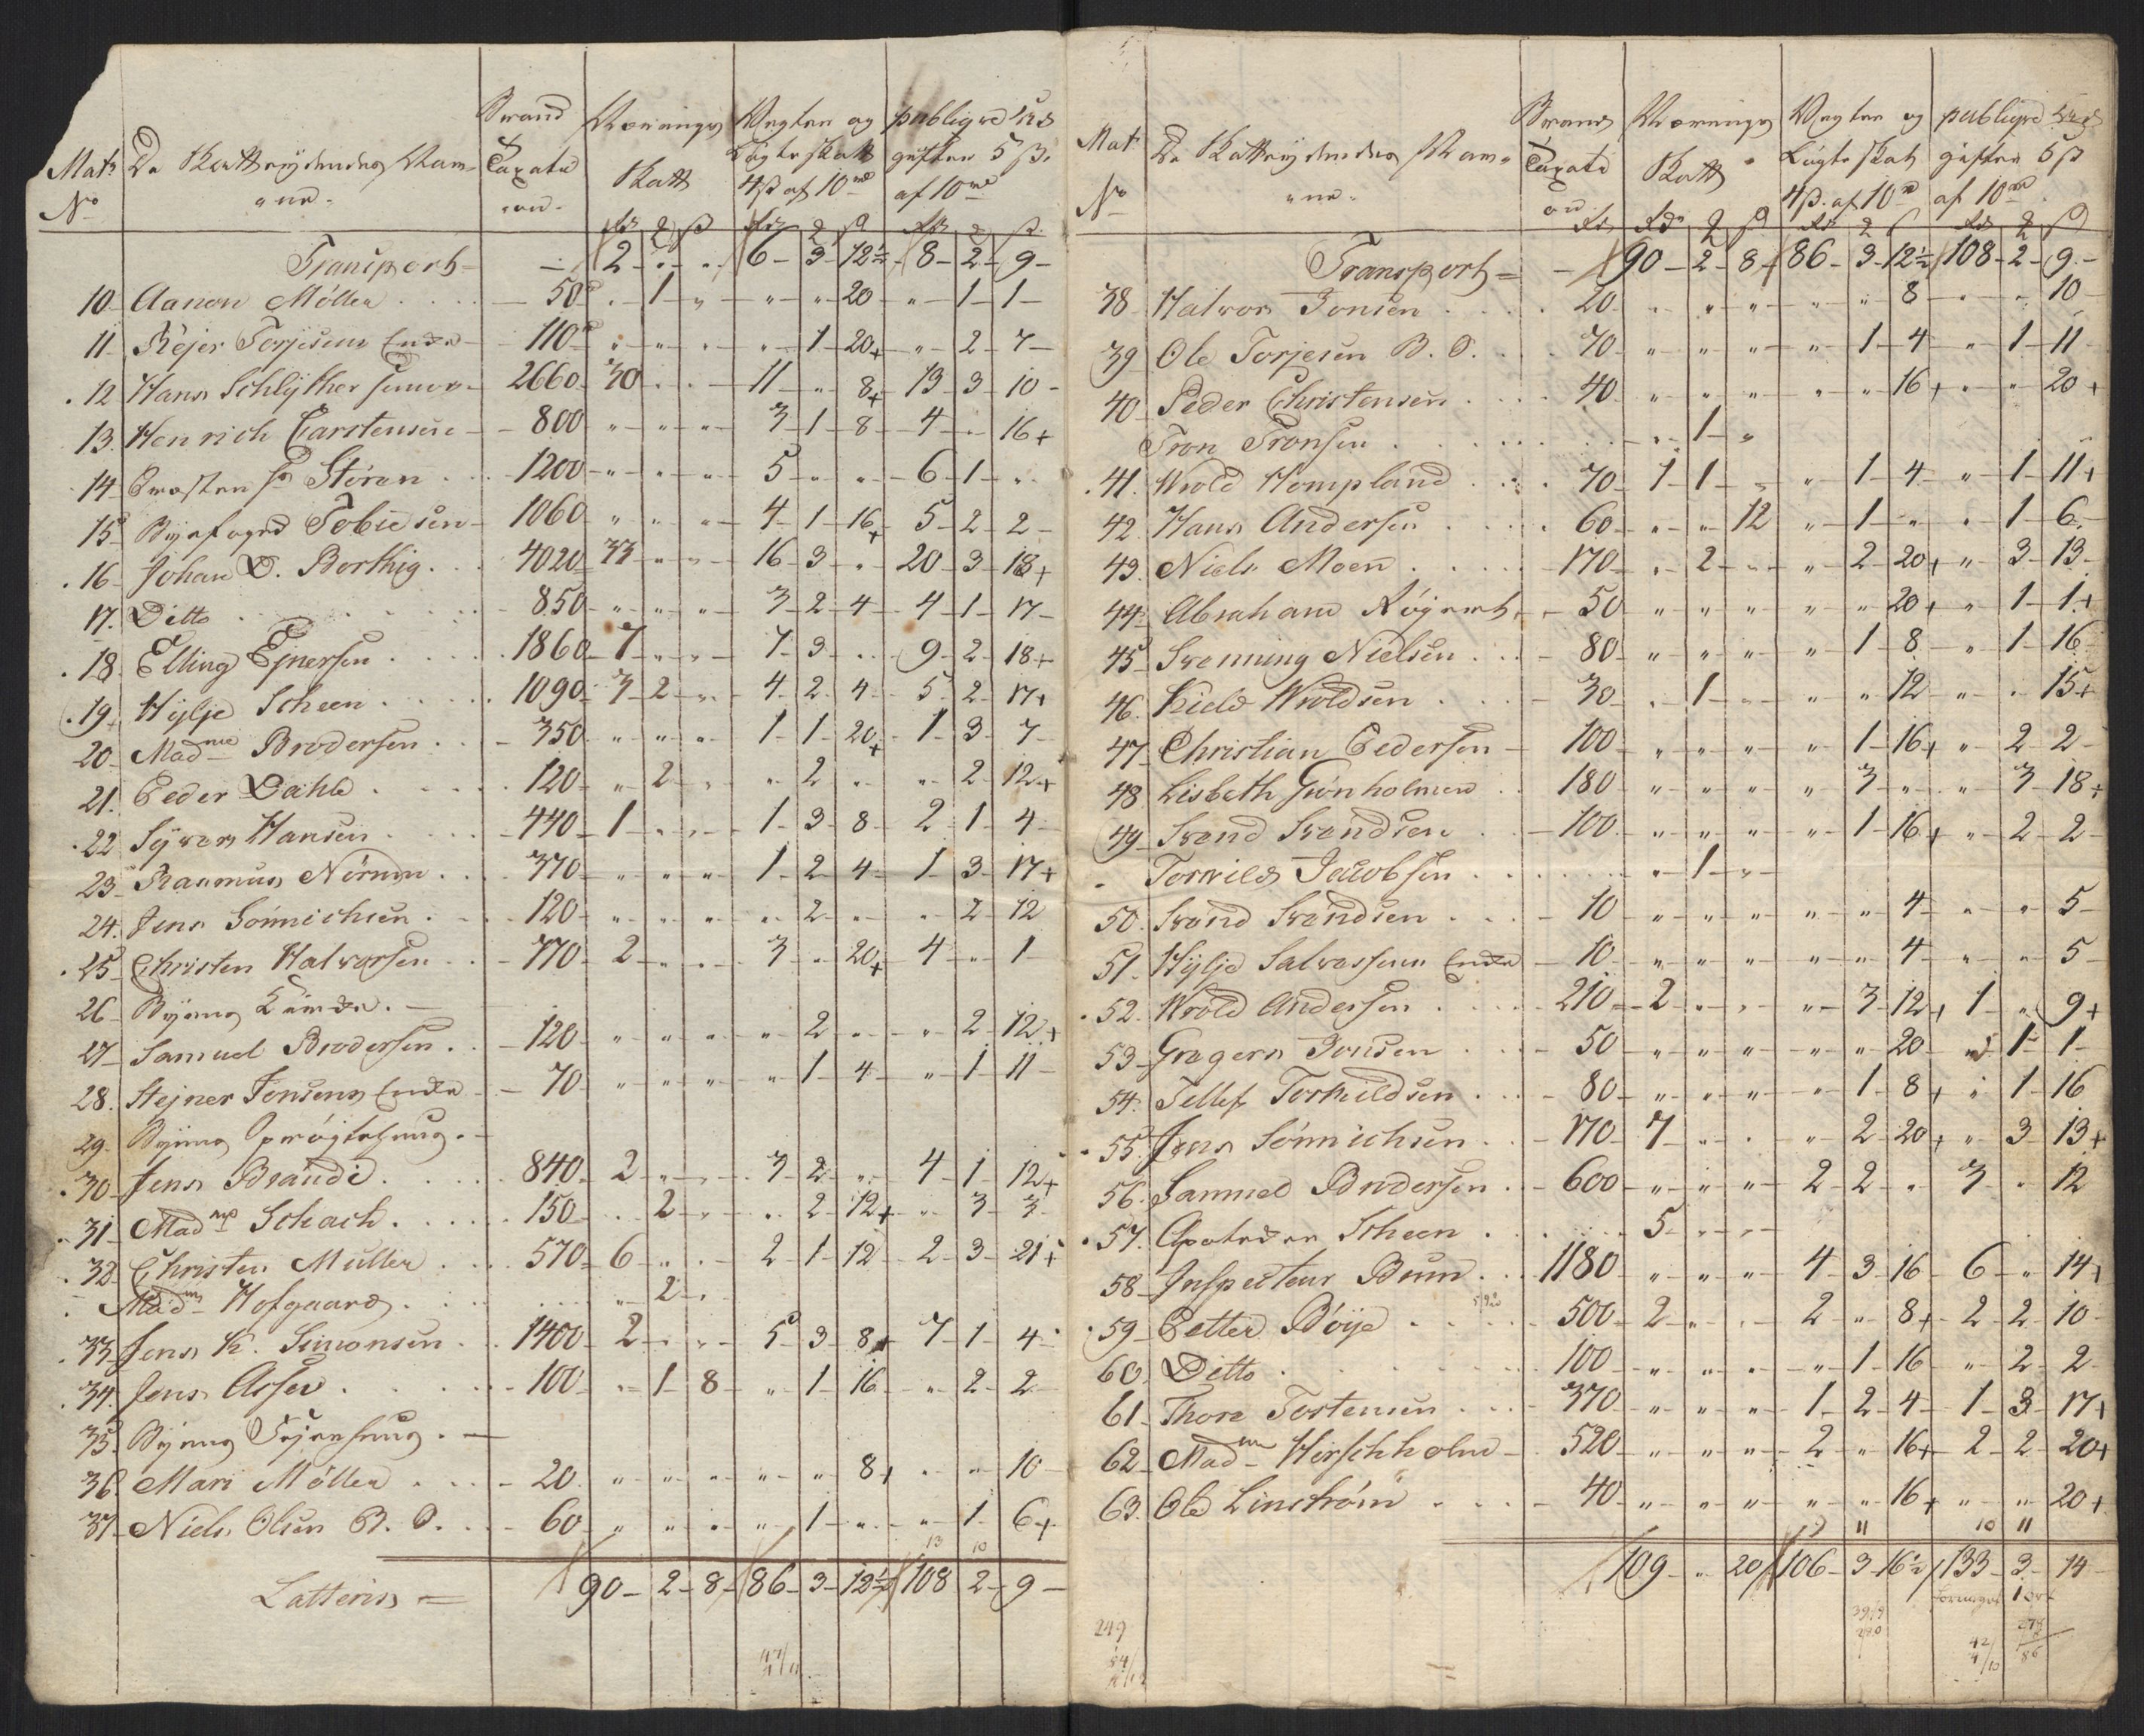 Mats No De Skattydendes Navne Brand Taxation Nærings Skatt Vegter og Lügte Skatt 4 ß af 10 publique Udgifter 5 ß. af 10
Transport - 2 " " 6 - 3 - 12½ 8 - 2 - 9 -
10 Aanon Møller - 50 " 1 " " " 20 " 1 - 1 -
11 Rejer Torjesens Enke - 110 " " " " 1 - 20+ " 2 - 7 -
12 Hans Schlÿther senior - 2660 - 30 " " 11 - " 8+ 13 - 3 - 10 -
13. Henrich Carstensen - 800 " " " 3 - 1 - 8 - 4 - " 16+
14 Støren - 1200 " " " 5 - " " 6 - 1 - "
15 Byefoged Tobiesen - 1060 " " " 4 - 1 - 16+ 5 - 2 - 2 -
16 Johan D. Borthig. 4020 - 33 " " 16 - 3 - " 20 - 3 - 18+
17. Ditto - 850 " " " 3 - 2 - 4 - 4 - 1 - 17 -
18. Elling Ejnersen 1860 - 7 " " 7 - 3 - " 9 - 2 - 18+
19. Hylje Scheen 1090 - 3 - 2 " 4 - 2 - 4 - 5 - 2 - 17+
20 Madme Brodersen - 350 " " " 1 - 1 - 20+ 1 - 3 - 7 -
21. Peder Dahle 120 " 2 " " 2 " " 2 - 12+
22 Syvers Hansen - 440 - 1 " " 1 - 3 - 8 - 2 - 1 - 4 -
23 Rasmus Nörum 370 " " " 1 - 2 - 4 - 1 - 3 - 17+
24. Jens Sönnichsen 120 " " " " 2 " " 2 - 12
25 Christen Halvorsen - 770 - 2 " " 3 - " 20+ 4 - " 1
26 Byens
27 Samuel Brodersen - 120 " " " " 2 " " 2 - 12+
28. Stejner Jonsens Enke - 70 " " " " 1 - 4 - " 1 - 11 -
29. Byens Sprøjtehuus
30 Jens Brandi 840 - 2 " " 3 - 2 " 4 - 1 - 12+
31 Madme Schach 150 " 2 " " 2 - 12+ " 3 - 3
32 Christen Müller 570 - 6 " " 2 - 1 - 12 2 - 3 - 21+
Madme Hofgaard " 2 "
33 Jens K. Simonsen 1400 - 2 " " 5 - 3 - 8+ 7 - 1 - 4
34. Jens Asser - 100 " 1 - 8 - " 1 - 16 " 2 - 2
35. Byens
36 Mari Møller - 20 " " " " " 8+ " " 10 -
37 Niels Olsen B. O. 60 " " " " 1 " " 1 - 6+
13 10
Latteris = 90 - 2 - 8 - 86 - 3 - 12½ 108 2 - 9 -
Mat No De Skattydendes Navne Brand Taxation Nærings Skatt Vegter og Lügte Skatt 4 ß. af 10 publique Udgifter 5 ß af 10
Transport = - 90 - 2 - 8 - 86 - 3 - 12½ 108 - 2 - 9 -
38 Halvor Jonsen 20 " " " " " 8 - " " 10 -
39 Ole Torjesen B. O. 70 " " " " 1 - 4 - " 1 - 11
40 Peder Christensen 40 " " " " " 16+ " " 20+
Tron Tronsen " 1 - "
41. Wrold Hompland 70 - 1 - 1 " " 1 - 4 - " 1 - 11+
42. Hans Andersen 60 " " 12 " 1 - " " 1 - 6
43. Niels Moen - 170 " 2 " " 2 - 20+ " 3 - 13
44. Abraham Røyert - 50 " " " " " 20+ " 1 - 1+
45 Svenning Nielsen - 80 " " " " 1 - 8 - " 1 - 16
46. Kield Wroldsen - 30 " 1 " " " 12 " " 15+
47 Christian Pedersen - 100 " " " " 1 - 16+ " 2 - 2
48 Lisbeth Grønholmen 180 " " " " 3 " " 3 - 18+
49 Svend Svendsen - 100 " " " " 1 - 16+ " 2 - 2 -
Torkild Jacobsen " 1 "
50. Svend Svendsen - 10 " " " " " 4 - " " 5
51. Hylje Salvessens Enke - 10 " " " " " 4 - " " 5
52. Wrold Andersen 210 - 2 " " " 3 - 12+ 1 - " 9+
53 Gregers Jonsen - 50 " " " " " 20 " 1 - 1
54. Tellef Torkildsen - 80 " " " " 1 - 8+ " 1 - 16
55. Jens Sönnichsen - 170 - 7 " " " 2 - 20+ " 3 - 13+
56. Samuel Brodersen - 600 " " " 2 - 2 " 3 - " 12
57. Apoteker Scheen 5 " "
58 Inspecteur Bum 1180 " " " 4 - 3 - 16 6 - " 14+
59 Petter Böije 500 - 2 " " 2 - " 8+ 2 - 2 - 10
60. Ditto 100 " " " " 1 - 16 " 2 - 2
61 Thore Tostensen 370 " " " 1 - 2 - 4 - 1 - 3 - 17+
62 Madme Hirschholm - 520 " " " 2 - " 16+ 2 - 2 - 20+
63. Ole Linström - 40 " " " " " 16+ " " 20+
11 10 11
109 - " 20 106 - 3 - 16½ 133 - 3 - 14
249